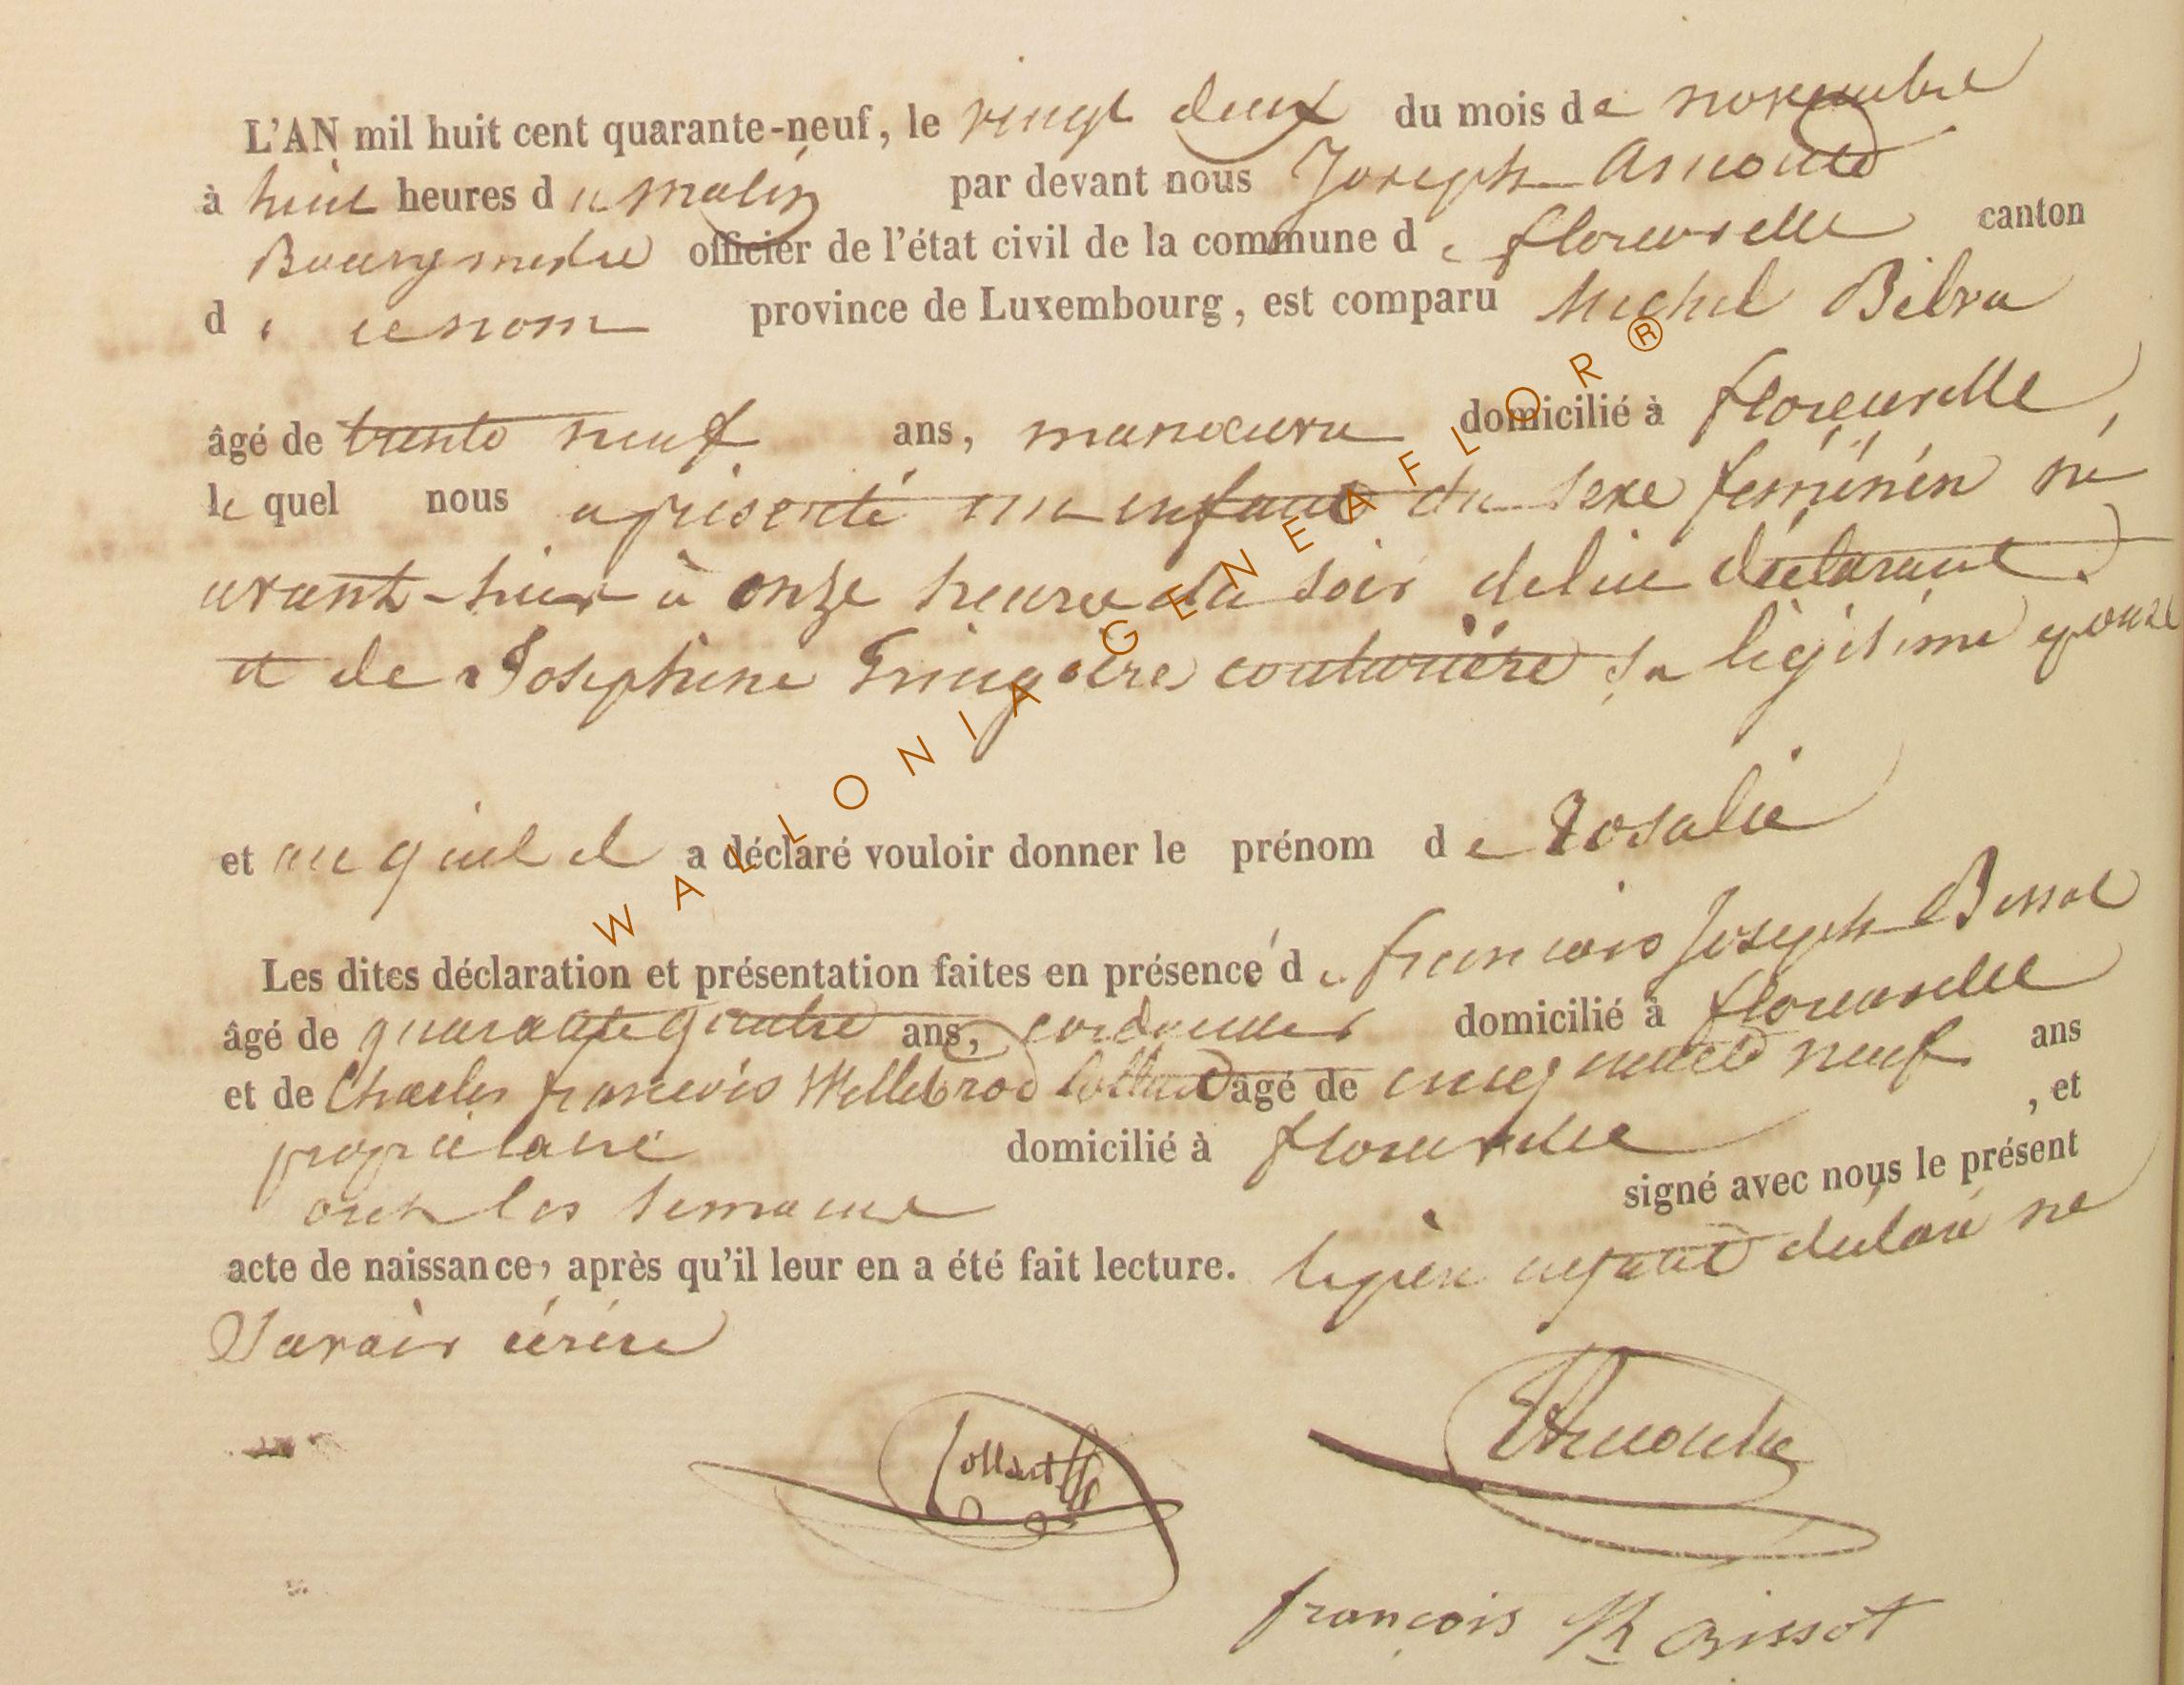 L'AN mil huit cent quarante-neuf, le vingt deux du mois de novembre
à huit heures du matin par devant nous Joseph Arnould
Bourgmestre officier de l'état civil de la commune de florenville canton
de ce nom province de Luxembourg, est comparu Michel
âgé de trente neuf ans, manoeuvre domicilié à florenville,
lequel nous a présenté un enfant du sexe féminin né
avant-hier à onze heures du soir de lui déclarant
et de Josephine couturière sa légitime epouse
et auquel il a déclaré vouloir donner le prénom de Rosalie
Les dites déclaration et présentation faites en présence de francois Joseph
âgé de quarante quatre ans, cordonnier domicilié à florenville
et de Charles francois Willebrod Collard âgé de cinquante neuf ans
propriétaire domicilié à florenville , et
ont les temoins signé avec nous le présent
acte de naissance, après qu'il leur en a été fait lecture. le père ayant déclaré ne
Savoir écrire
Collard
Arnould
françois
WALLONIA GENEAFLOR ®